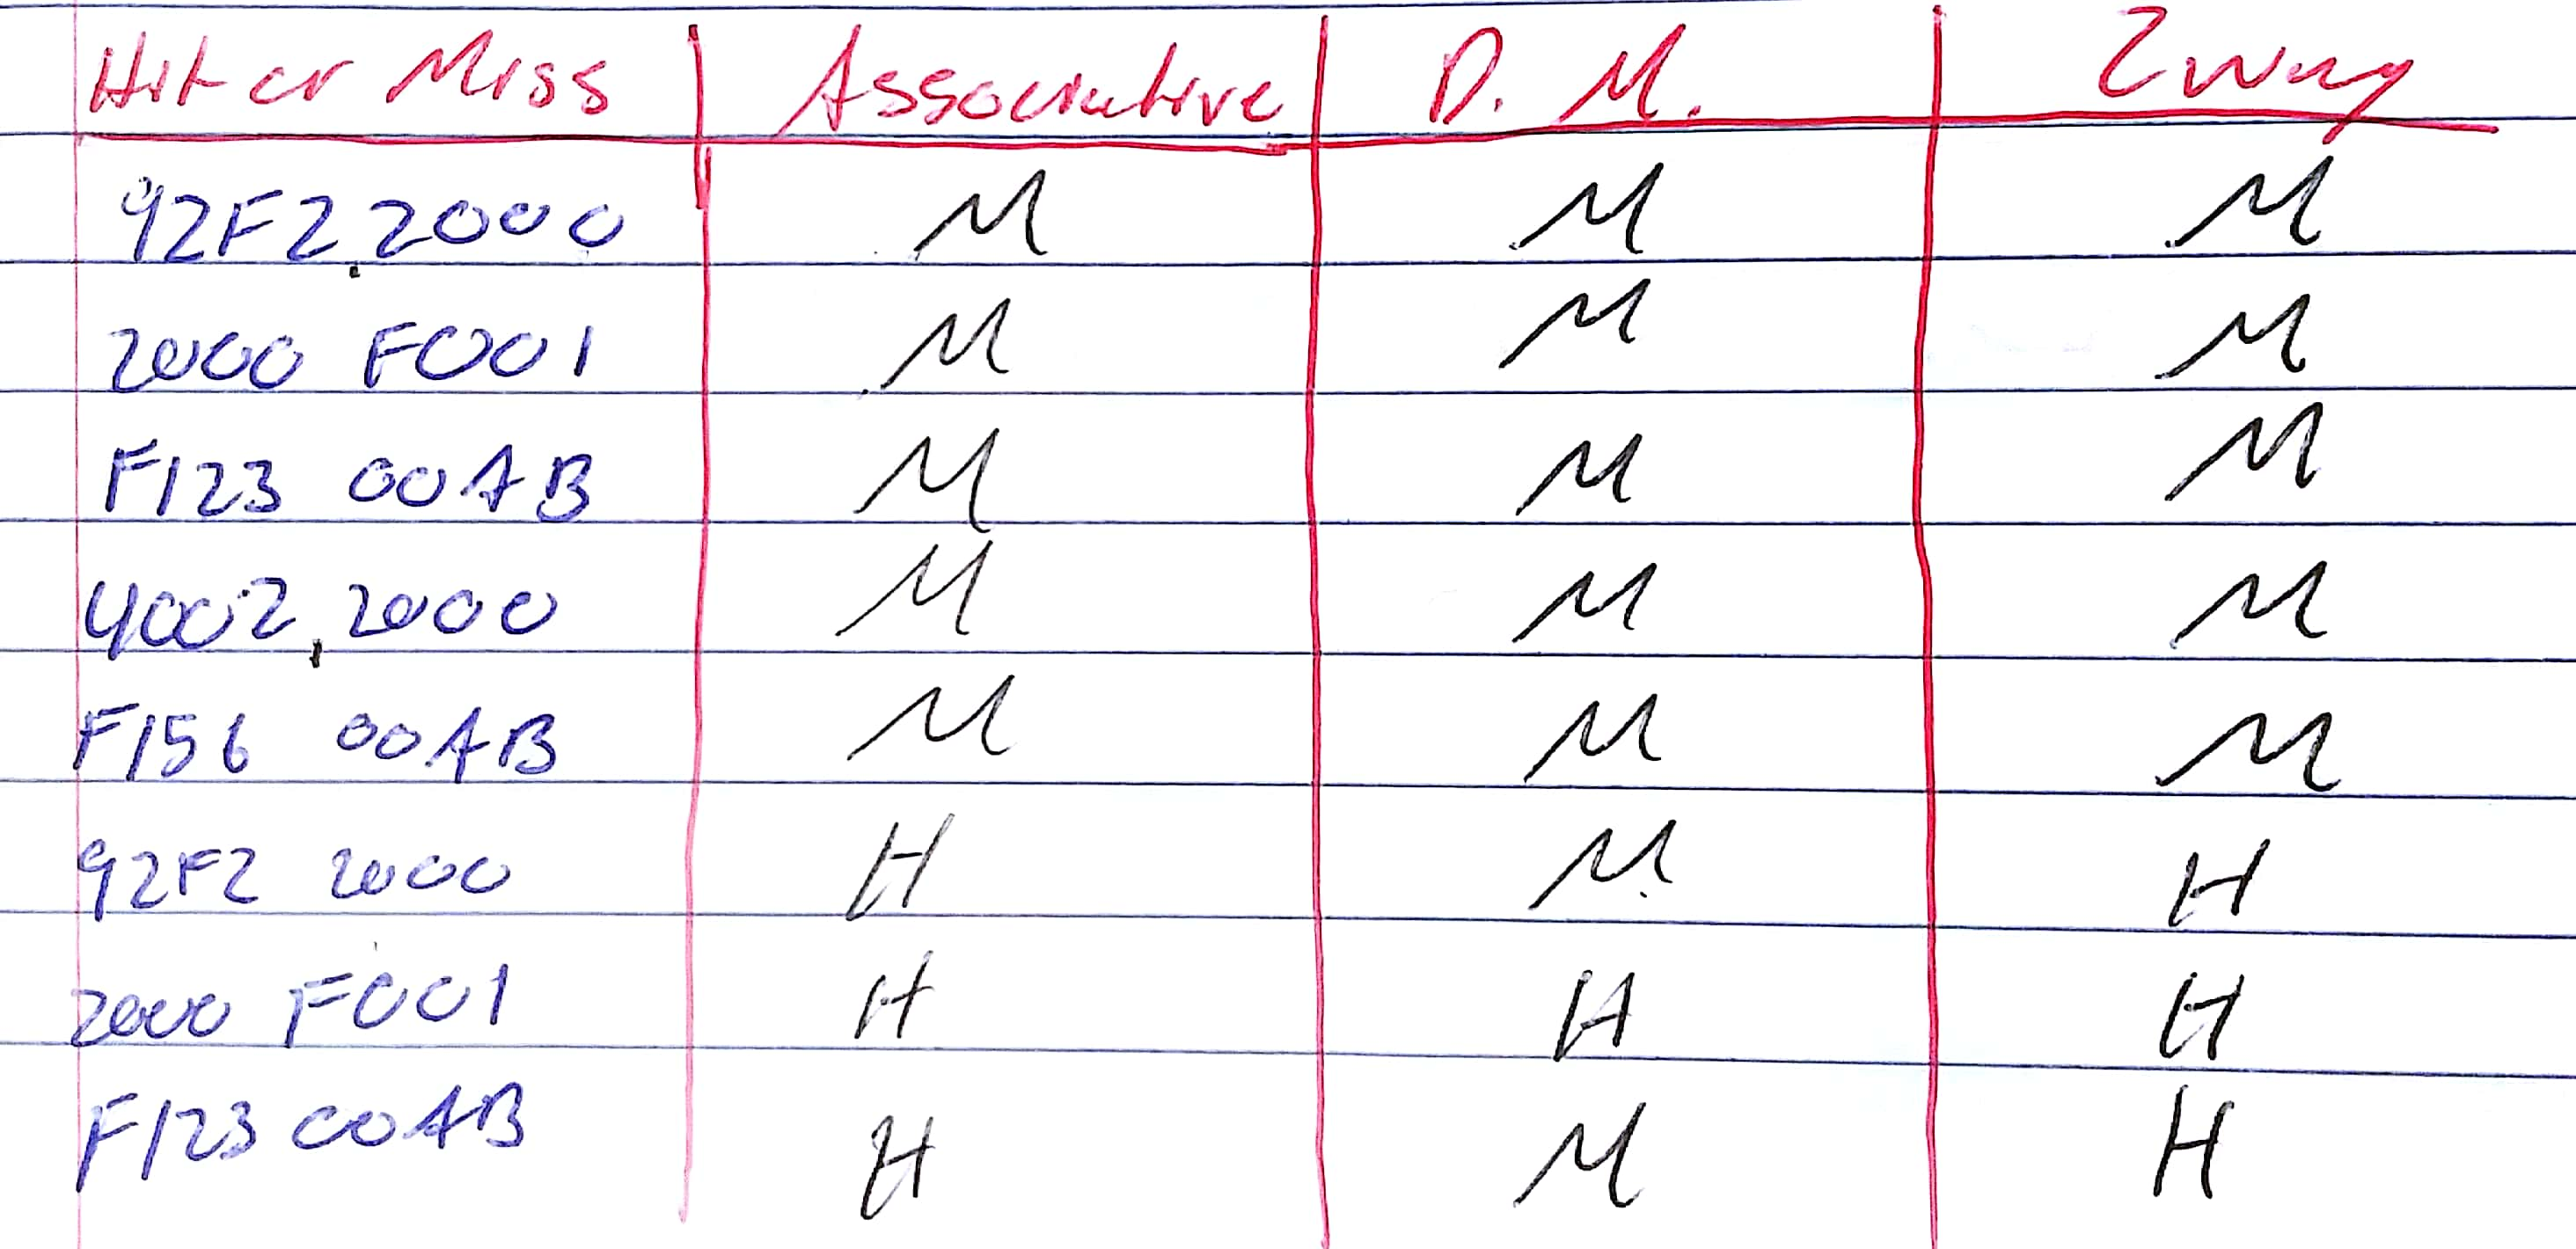 Hit or Miss Associative D. M. 2 Way
92F2,2000 M M M
2000 F001 M M M
F123 00AB M M M
4002,2000 M M M
F156 00AB M M M
92F2 2000 H M H
2000 F001 H H H
F123 00AB H M H